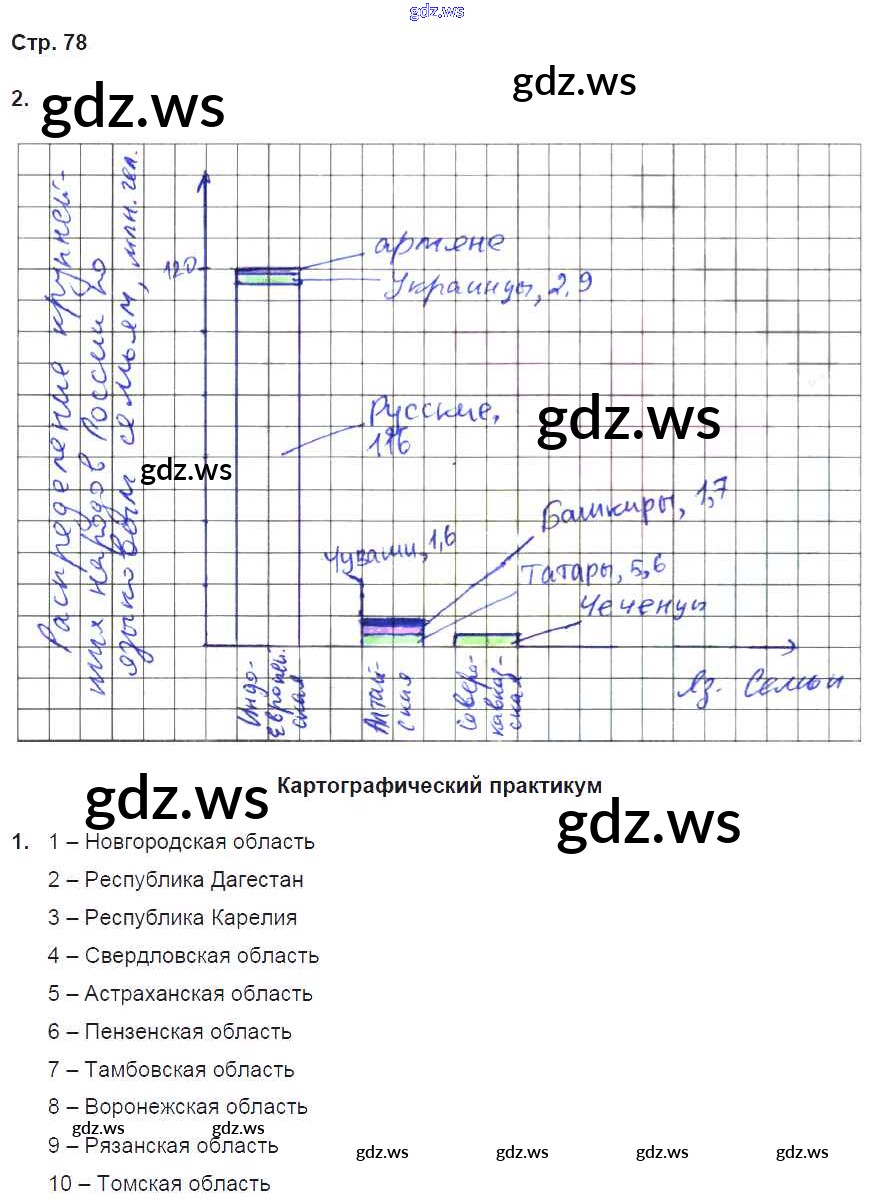 gdz.ws
Стр. 78
2.
gdz.ws
gdz.ws
Распределение крупней-
ших народов России по
языковым семьям, млн. чел.
120
армяне
Украинцы, 2,9
Русские,
116
gdz.ws
gdz.ws
Башкиры, 1,7
Чуваши, 1,6
Татары, 5,6
Чеченцы
Индо-
европей.
ская
Алтай-
ская
Северо-
кавказ-
ская
Яз. Семьи
Картографический практикум
gdz.ws
gdz.ws
1. 1 – Новгородская область
2 – Республика Дагестан
3 – Республика Карелия
4 – Свердловская область
5 – Астраханская область
6 – Пензенская область
7 – Тамбовская область
8 – Воронежская область
gdz.ws gdz.ws
9 – Рязанская область
gdz.ws gdz.ws gdz.ws gdz.ws
10 – Томская область